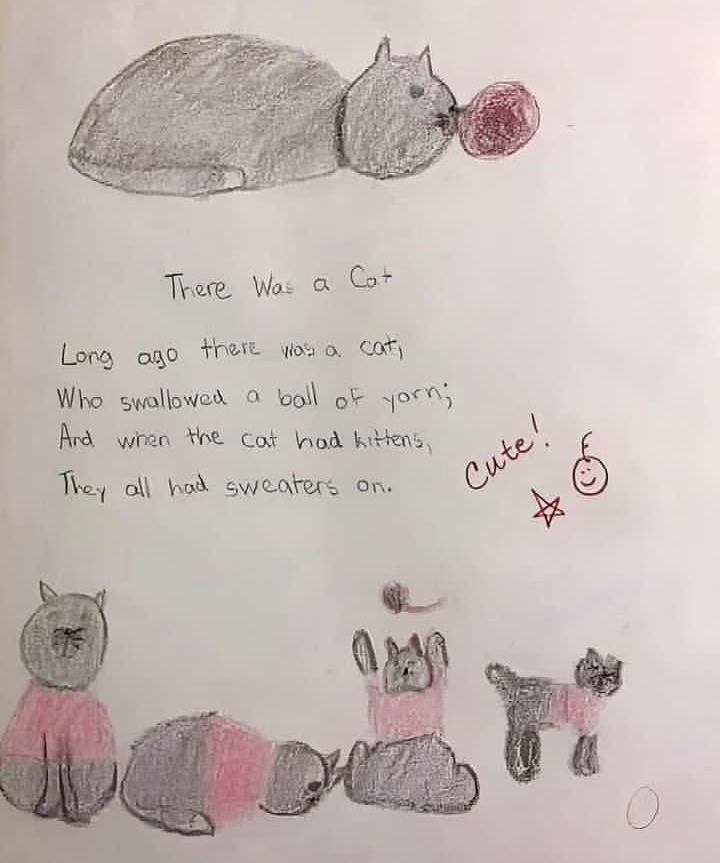 There Was a Cat
Long ago there was a cat,
Who swallowed a ball of yarn;
And when the cat had kittens,
They all had sweaters on.
Cute!